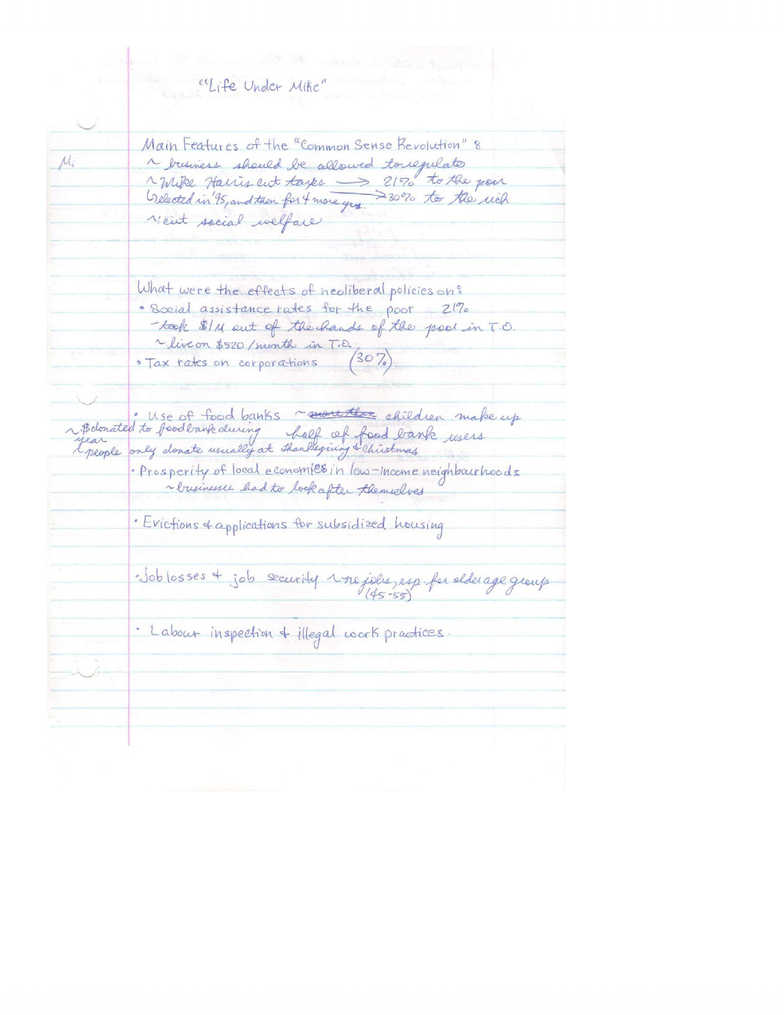 "Life Under Mike"
Main Features of the "Common Sense Revolution" :
M.
~ business should be allowed to regulate
~ Mike Harris cut taxes → 21% to the poor
↳ elected in '95, and then for 4 more yrs → 30% to the rich
~ cut social welfare
What were the effects of neoliberal policies on:
• Social assistance rates for the poor 21%
- took $1M out of the hands of the poor in T.O.
~ live on $520/month in T.O.
• Tax rates on corporations (30%)
• Use of food banks ~ more than children make up
half of food bank users
~ $ donated to food bank during
year
~ people only donate usually at thanksgiving & Christmas
• Prosperity of local economies in low-income neighbourhoods
~ businesses had to look after themselves
• Evictions & applications for subsidized housing
• Job losses & job security ~ no jobs, esp. for older age group
(45-55)
• Labour inspection & illegal work practices.